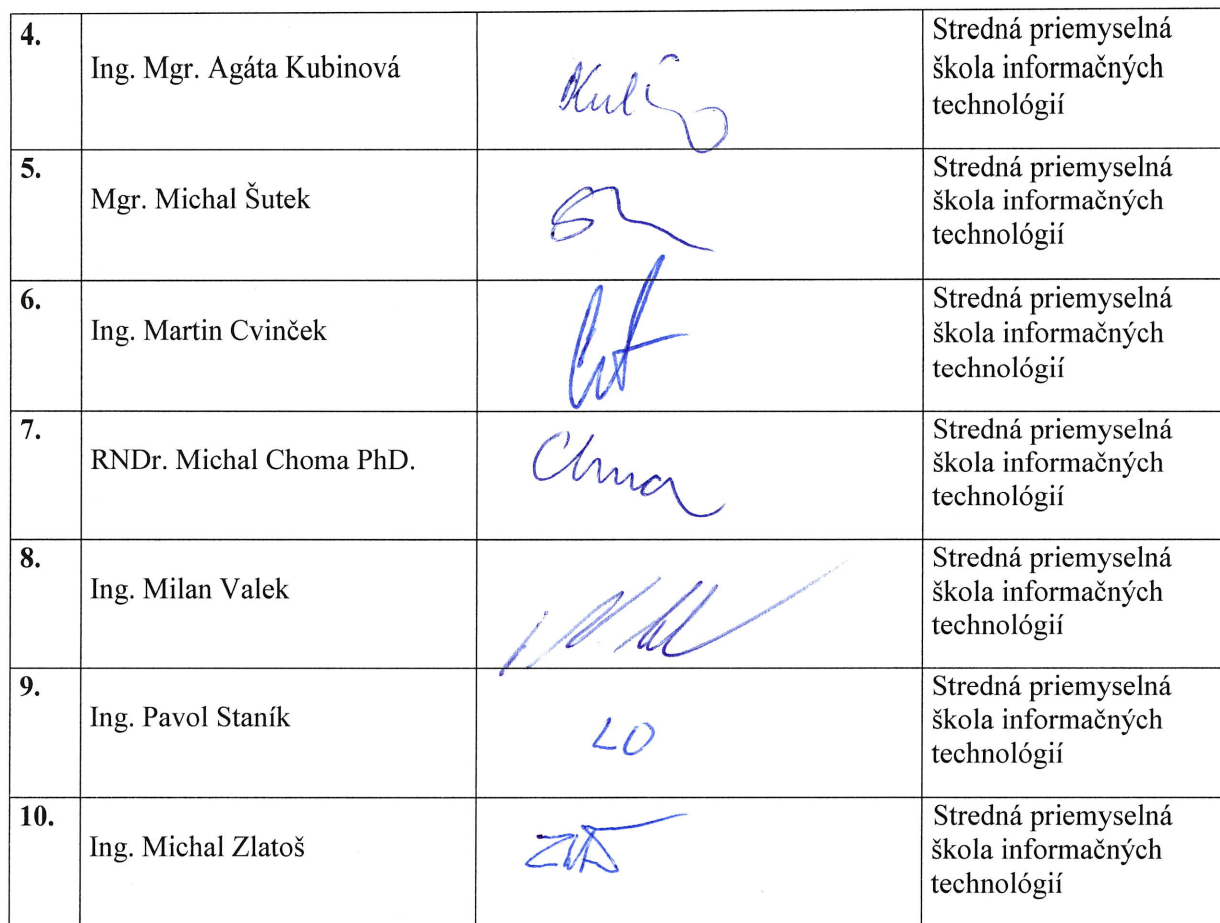 4.
Ing. Mgr. Agáta Kubinová
Stredná priemyselná
škola informačných
technológií
5.
Mgr. Michal Šutek
Stredná priemyselná
škola informačných
technológií
6.
Ing. Martin Cvinček
Stredná priemyselná
škola informačných
technológií
7.
RNDr. Michal Choma PhD.
Choma
Stredná priemyselná
škola informačných
technológií
8.
Ing. Milan Valek
Stredná priemyselná
škola informačných
technológií
9.
Ing. Pavol Staník
LO
Stredná priemyselná
škola informačných
technológií
10.
Ing. Michal Zlatoš
Stredná priemyselná
škola informačných
technológií